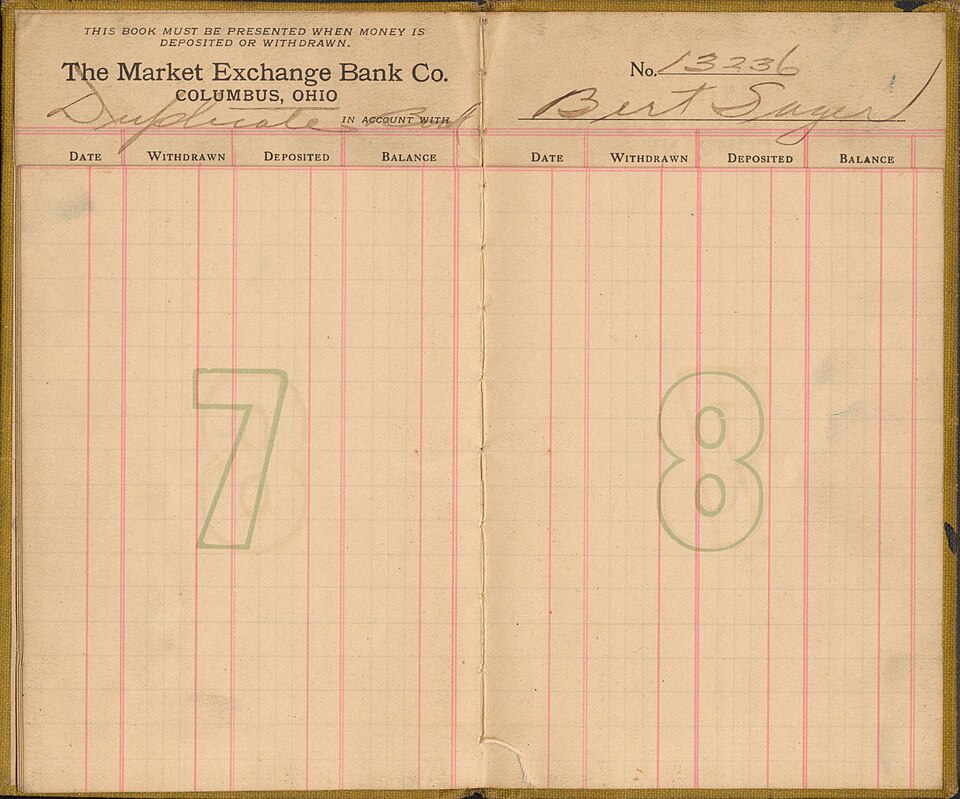 THIS BOOK MUST BE PRESENTED WHEN MONEY IS
DEPOSITED OR WITHDRAWN.
The Market Exchange Bank Co.
COLUMBUS, OHIO
Duplicate
IN ACCOUNT WITH
DATE WITHDRAWN DEPOSITED BALANCE
7
No. 13236
Bert Sayer
DATE WITHDRAWN DEPOSITED BALANCE
8